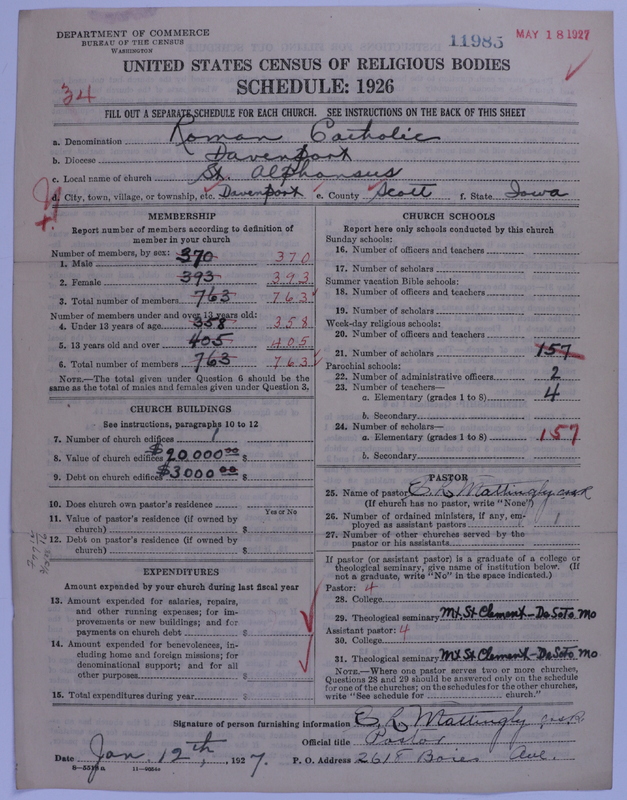 DEPARTMENT OF COMMERCE
BUREAU OF THE CENSUS
WASHINGTON
11985
MAY 18 1927
UNITED STATES CENSUS OF RELIGIOUS BODIES
SCHEDULE: 1926
34
FILL OUT A SEPARATE SCHEDULE FOR EACH CHURCH. SEE INSTRUCTIONS ON THE BACK OF THIS SHEET
a. Denomination Roman Catholic
b. Diocese Davenport
c. Local name of church St. Alphonsus
d. City, town, village, or township, etc. Davenport e. County Scott f. State Iowa
MEMBERSHIP
Report number of members according to definition of
member in your church
Number of members, by sex:
1. Male 370 370
2. Female 393 393
3. Total number of members 763 763
Number of members under and over 13 years old:
4. Under 13 years of age 358 358
5. 13 years old and over 405 405
6. Total number of members 763 763
NOTE.—The total given under Question 6 should be
same as the total of males and females given under Question 3.
CHURCH BUILDINGS
See instructions, paragraphs 10 to 12
7. Number of church edifices 1
8. Value of church edifices $20,000.00 $
9. Debt on church edifices $3000.00 $
10. Does church own pastor's residence
Yes or No
11. Value of pastor's residence (if owned by
church) $
12. Debt on pastor's residence (if owned by
church) $
EXPENDITURES
Amount expended by your church during last fiscal year
13. Amount expended for salaries, repairs,
and other running expenses; for im-
provements or new buildings; and for
payments on church debt $
14. Amount expended for benevolences, in-
cluding home and foreign missions; for
denominational support; and for all
other purposes $
15. Total expenditures during year $
CHURCH SCHOOLS
Report here only schools conducted by this church
Sunday schools:
16. Number of officers and teachers
17. Number of scholars
Summer vacation Bible schools:
18. Number of officers and teachers
19. Number of scholars
Week-day religious schools:
20. Number of officers and teachers
21. Number of scholars 157
Parochial schools:
22. Number of administrative officers 2
23. Number of teachers—
a. Elementary (grades 1 to 8) 4
b. Secondary
24. Number of scholars—
a. Elementary (grades 1 to 8) 157
b. Secondary
PASTOR
25. Name of pastor C. R. Mattingly CSSR
(If church has no pastor, write "None")
26. Number of ordained ministers, if any, em-
ployed as assistant pastors 1
27. Number of other churches served by the
pastor or his assistants
If pastor (or assistant pastor) is a graduate of a college or
theological seminary, give name of institution below. (If
not a graduate, write "No" in the space indicated.)
Pastor: 4
28. College
29. Theological seminary Mt St Clement - De Soto Mo
Assistant pastor: 4
30. College
31. Theological seminary Mt St Clement - De Soto Mo
NOTE.—Where one pastor serves two or more churches,
Questions 28 and 29 should be answered only on the schedule
for one of the churches; on the schedules for the other churches,
write "See schedule for church."
Signature of person furnishing information C. R. Mattingly CSSR
Official title Pastor
Date Jan. 12th, 1927. P. O. Address 2618 Boies Ave.
8—5518a 11—9054a